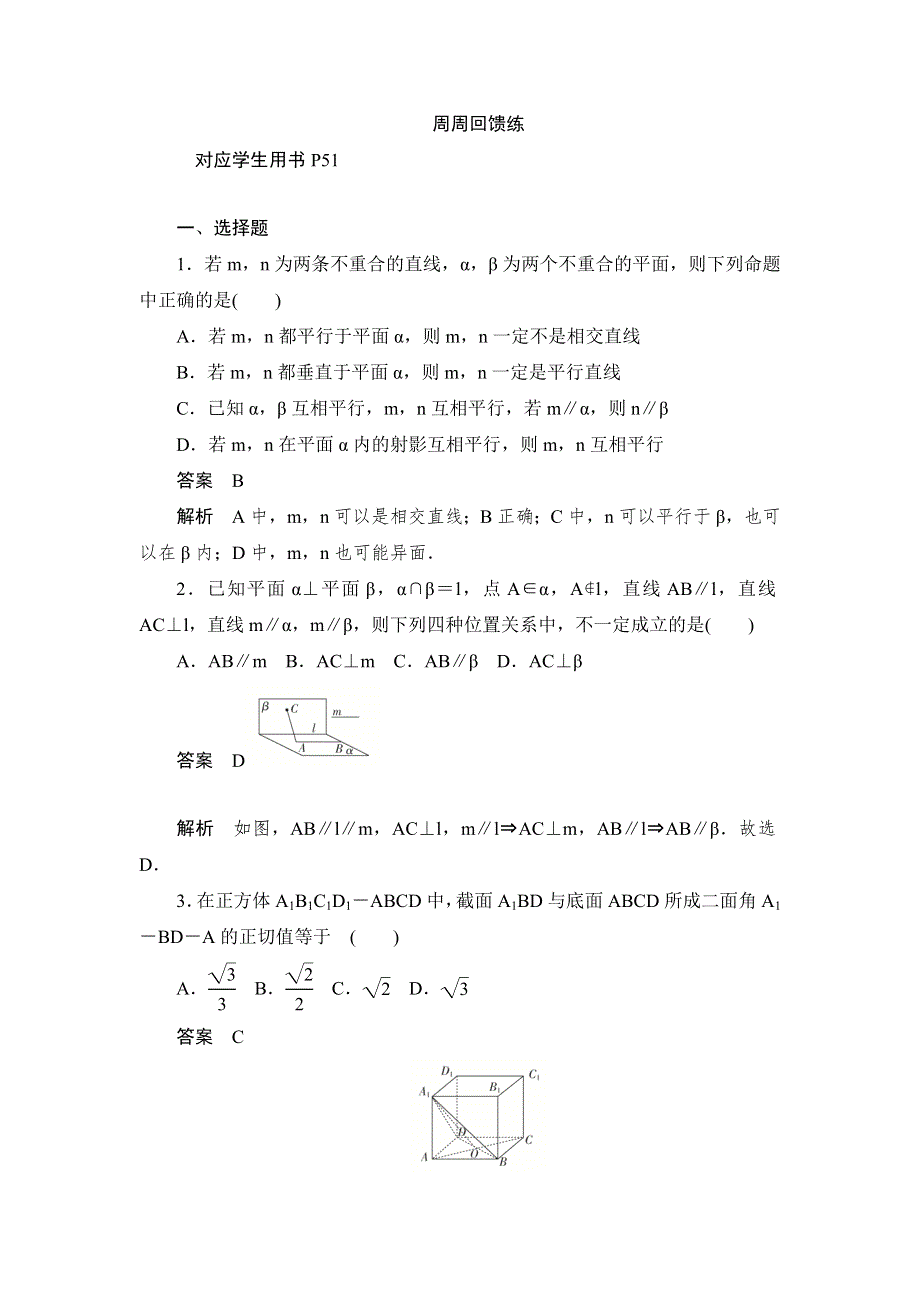 周周回馈练
对应学生用书 P51
一、选择题
1．若 m，n 为两条不重合的直线，α，β 为两个不重合的平面，则下列命题
中正确的是(　　)
A．若 m，n 都平行于平面 α，则 m，n 一定不是相交直线
B．若 m，n 都垂直于平面 α，则 m，n 一定是平行直线
C．已知 α，β 互相平行，m，n 互相平行，若 m∥α，则 n∥β
D．若 m，n 在平面 α 内的射影互相平行，则 m，n 互相平行
答案　B
解析　A 中，m，n 可以是相交直线；B 正确；C 中，n 可以平行于 β，也可
以在 β 内；D 中，m，n 也可能异面．
2．已知平面 α⊥平面 β，α∩β＝l，点 A∈α，A∉l，直线 AB∥l，直线
AC⊥l，直线 m∥α，m∥β，则下列四种位置关系中，不一定成立的是(　　)
A．AB∥m　B．AC⊥m　C．AB∥β　D．AC⊥β
β C m
l
A B α
答案　D
解析　如图，AB∥l∥m，AC⊥l，m∥l⇒AC⊥m，AB∥l⇒AB∥β．故选
D．
3．在正方体 A₁B₁C₁D₁－ABCD 中，截面 A₁BD 与底面 ABCD 所成二面角 A₁
－BD－A 的正切值等于　(　　)
A．√3/3　B．√2/2　C．√2　D．√3
答案　C
D₁ C₁
A₁ B₁
D C
A O B